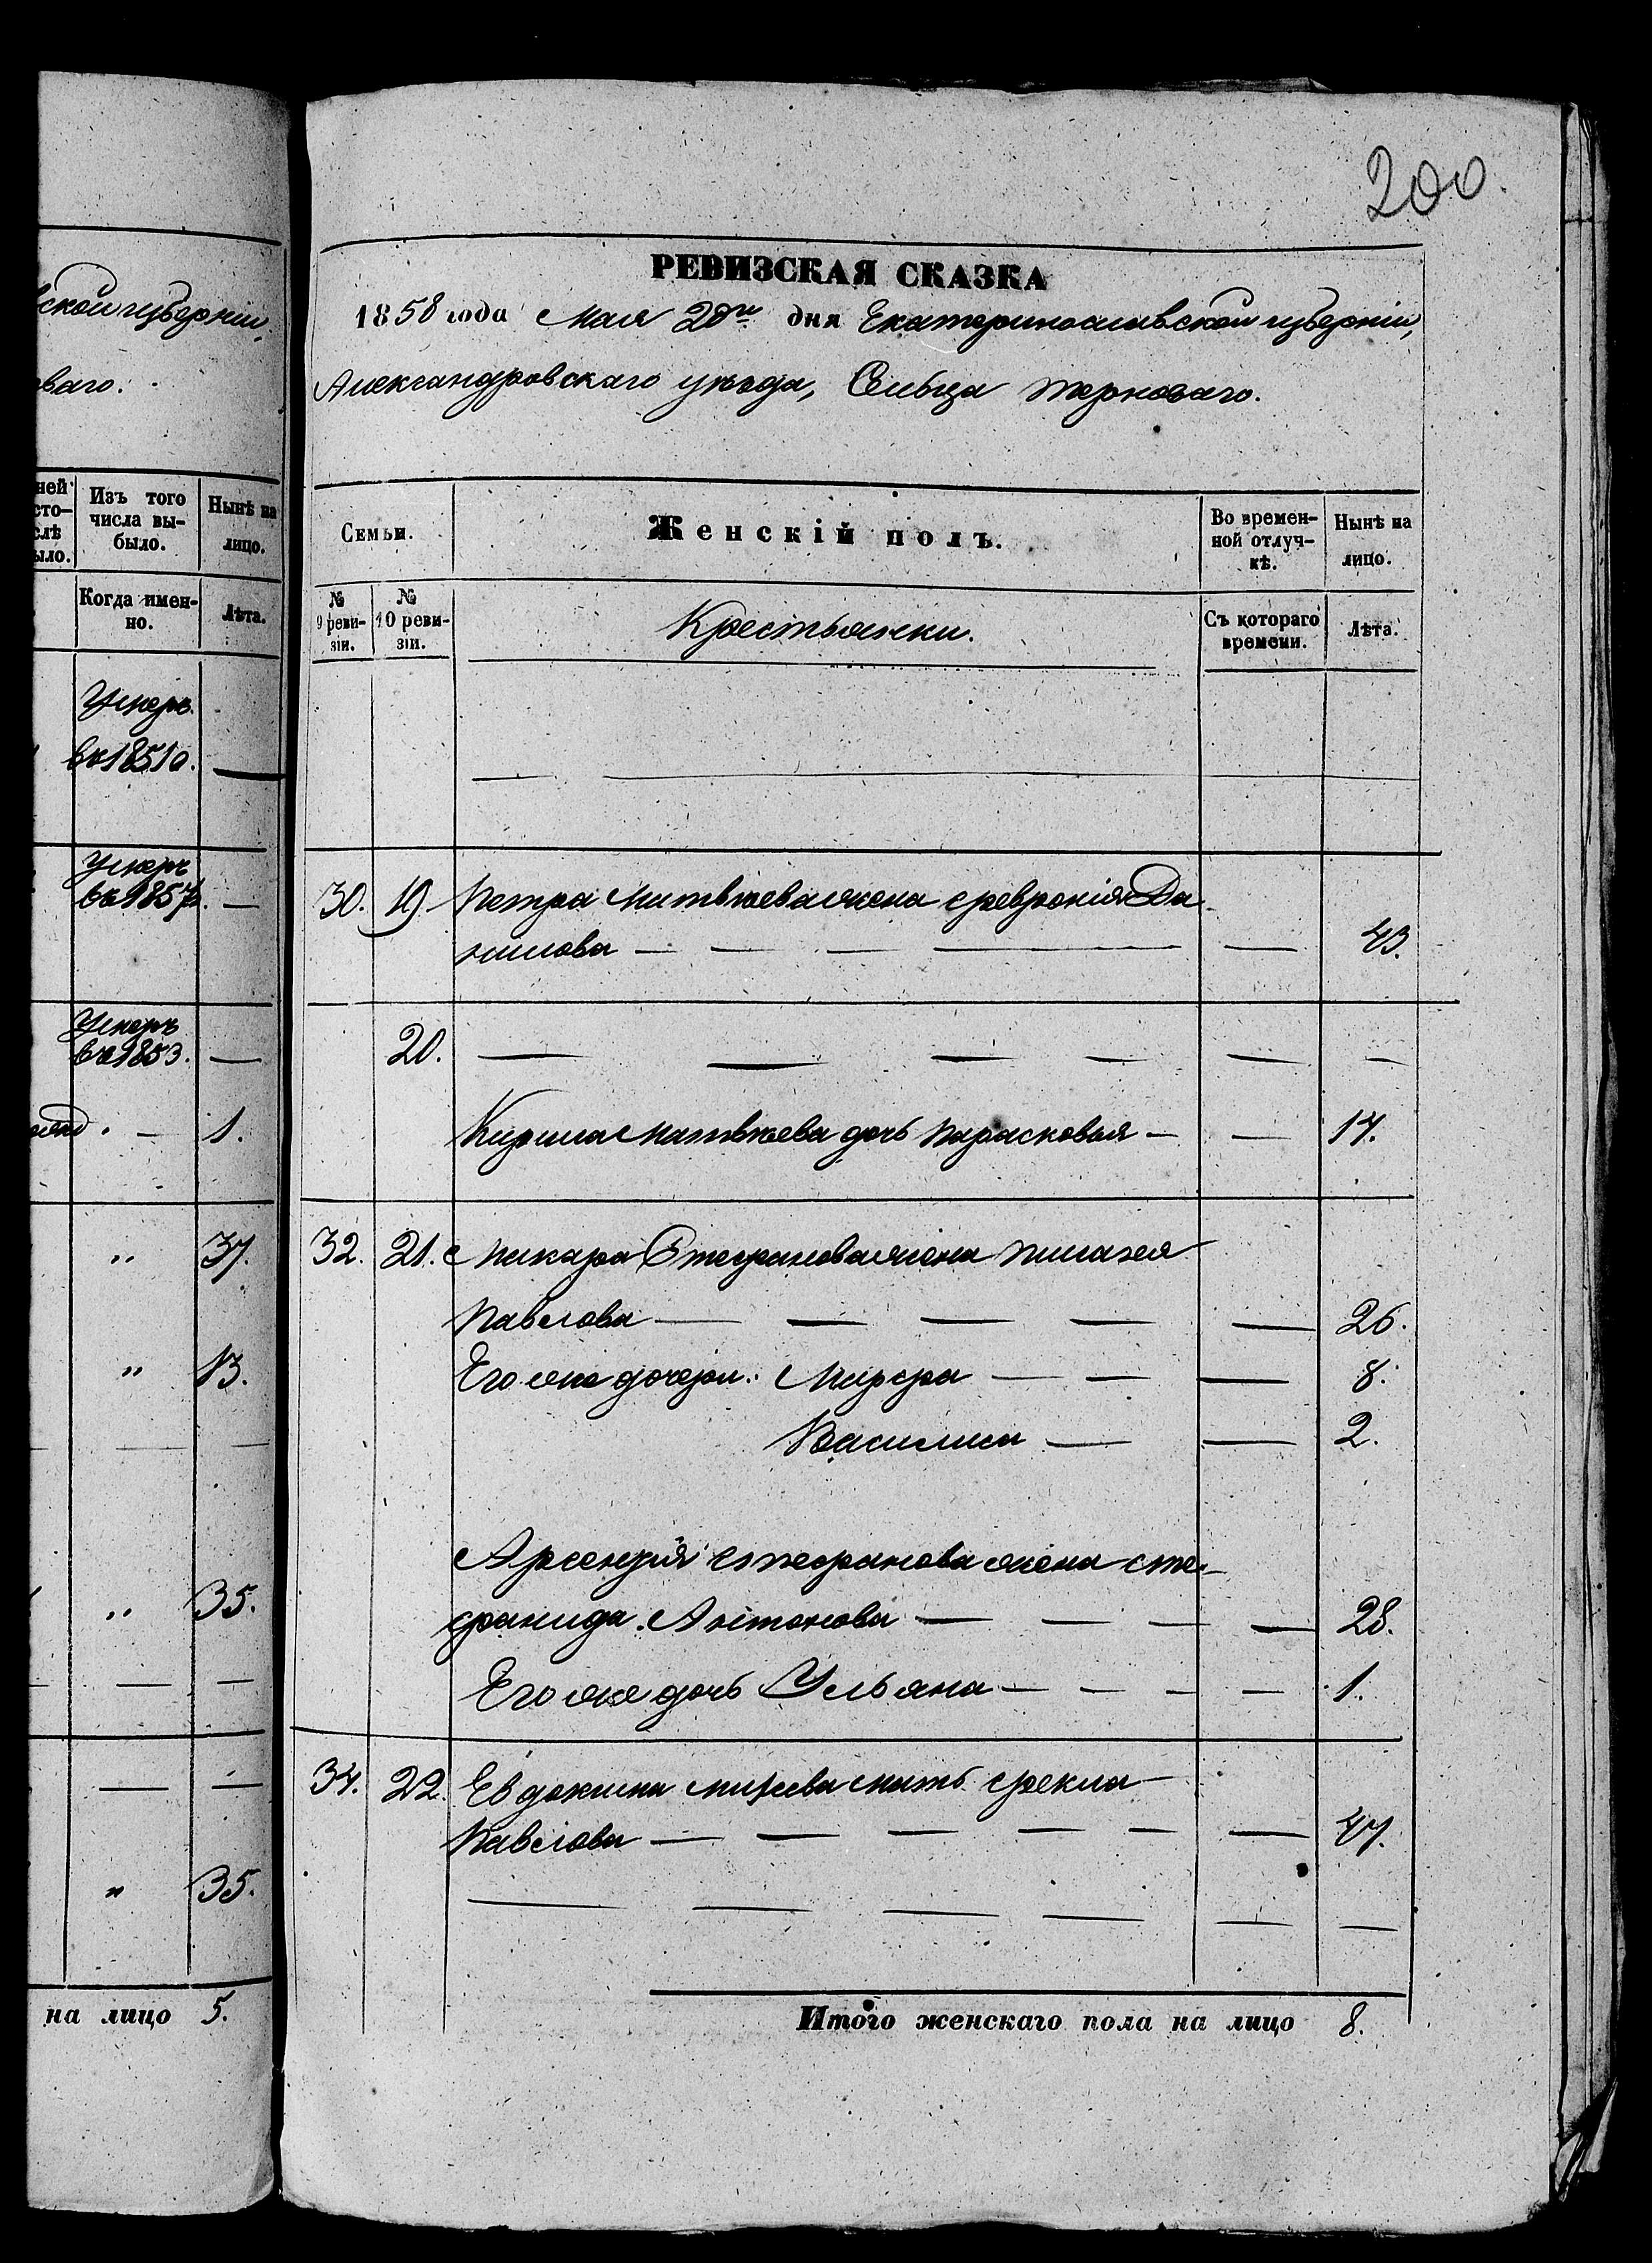 200.
ской губерніи,
оваго.
ней
сто-
слѣ
ыло.
Изъ того
числа вы-
было.
Нынѣ на
лицо.
Когда имен-
но.
Лѣта.
Умеръ
въ 1851 г.
—
Умеръ
въ 1857 г. —
Умеръ
въ 1853. —
" — 1.
" 37.
" 13.
— — —
" 35.
— — —
— —
" 35.
на лицо 5.
РЕВИЗСКАЯ СКАЗКА
1858 года Мая 28го дня Екатеринославской губерніи,
Александровскаго уѣзда, Сельца Терноваго.
Семьи.
Женскій полъ.
Во времен-
ной отлуч-
кѣ.
Нынѣ на
лицо.
№
9 реви-
зіи.
№
10 реви-
зіи.
Крестьянки.
Съ котораго
времени.
Лѣта.
— — — —
30. 19. Петра Матвѣева жена Февронія Да-
нилова — — — — — 43.
20. — — — — — —
Кирила Матвѣева дочь Парасковья — — 17.
32. 21. Макара Стефанова жена Пилагея
Павлова — — — — — 26.
Его же дочери: Марфа — — — 8.
Василиса — — 2.
Арсентія Стефанова жена Сте-
фанида Антонова — — — — 28.
Его же дочь Ульяна — — — — 1.
34. 22. Евдокима мать Фекла
Павлова — — — — — — 47.
— — — — — —
Итого женскаго пола на лицо 8.